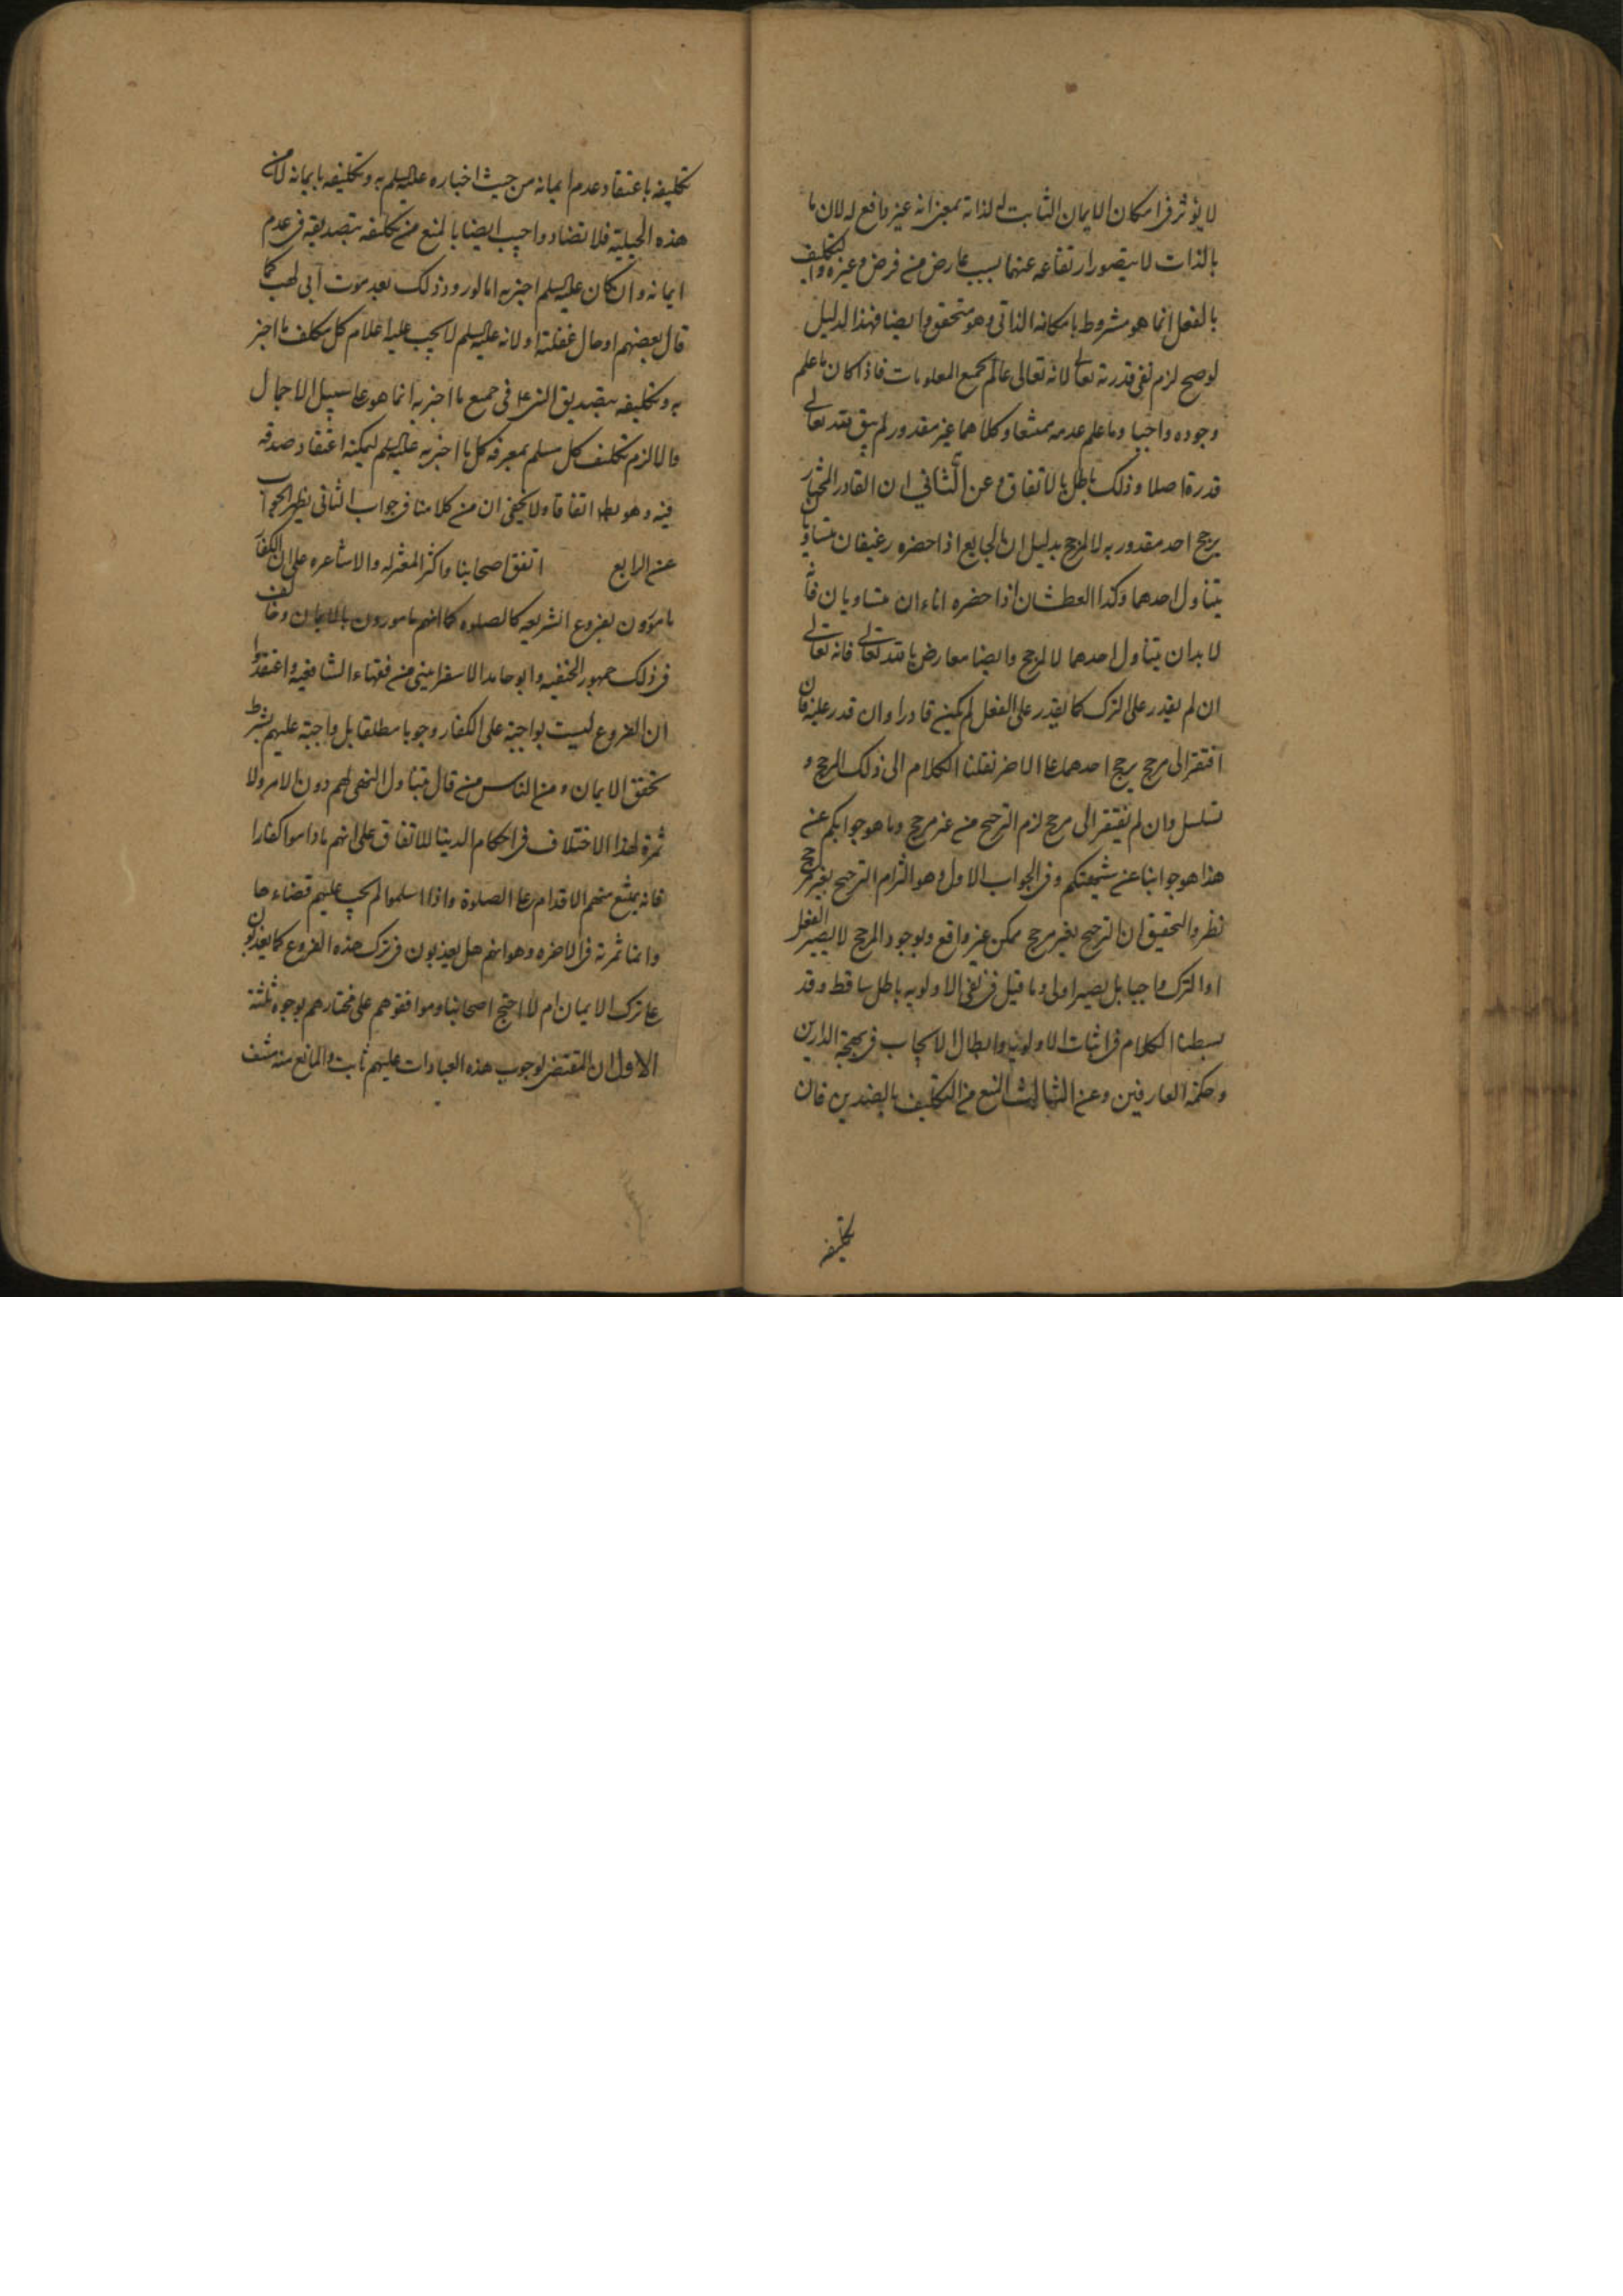 لا يؤثر في امكان الايمان الثابت له لذاته بمعنى انه غير رافع له لان ما
بالذات لا يتصور ارتفاعه عنها بسبب عارض من فرض وغيره والتكليف
بالفعل انما هو مشروط بامكانه الذاتي وهو متحقق وايضا فهذا الدليل
لو صح لزم نفي قدرته تعالى لانه تعالى عالم بجميع المعلومات فاذا كان ما علم
وجوده واجبا وما علم عدمه ممتنعا وكلاهما غير مقدور لم يبق لله تعالى
قدرة اصلا وذلك باطل بالاتفاق وعن الثاني ان القادر المختار
يرجح احد مقدوريه لا لمرجح بدليل ان الجايع اذا حضره رغيفان متساويان
يتناول احدهما وكذا العطشان اذا حضره اناءان متساويان فانه
لا بد ان يتناول احدهما لا لمرجح وايضا معارض بالله تعالى فانه تعالى
ان لم يقدر على الترك كما يقدر على الفعل لم يكن قادرا وان قدر عليه فان
افتقر الى مرجح يرجح احدهما على الاخر نقلنا الكلام الى ذلك المرجح و
تسلسل وان لم يفتقر الى مرجح لزم الترجيح من غير مرجح وما هو جوابكم عن
هذا هو جوابنا عن شبهتكم وفي الجواب الاول وهو التزام الترجيح بغير مرجح
نظر والتحقيق ان الترجيح بغير مرجح ممكن غير واقع وبوجود المرجح لا يصير الفعل
او الترك واجبا بل يصير اولى وما قيل في نفي الاولوية باطل ساقط وقد
بسطنا الكلام في اثبات الاولوية وابطال الايجاب في بهجة الدارين
وحكمة العارفين وعن الثالث المنع من التكليف بالضدين فان
تكليفه
تكليفه باعتقاد عدم ايمانه من حيث اخباره عليه السلم به وتكليفه بايمانه لا من
هذه الحيثية فلا تضاد واجيب ايضا بالمنع من تكليفه بتصديقه في عدم
ايمانه وان كان عليه السلم اخبر به اما لورود ذلك بعد موت ابي لهب كما
قال بعضهم او حال غفلته ولانه عليه السلم لا يجب عليه اعلام كل مكلف ما اخبر
به وتكليفه بتصديق النبي في جميع ما اخبر به انما هو على سبيل الاجمال
والا لزم تكليف كل مسلم بمعرفة كل ما اخبر به عليه السلم ليمكنه اعتقاد صدقه
فيه وهو بط اتفاقا ولا يخفى ان من كلامنا في جواب الثاني يظهر الجواب
عن الرابع اتفق اصحابنا واكثر المعتزله والاشاعره على ان الكفار
مامورون بفروع الشريعه كالصلوه كما انهم مامورون بالايمان وخالف
في ذلك جمهور الحنفيه وابو حامد الاسفرايني من فقهاء الشافعية واعتقدوا
ان الفروع ليست بواجبة على الكفار وجوبا مطلقا بل واجبة عليهم بشرط
تحقق الايمان ومن الناس من قال بتناول النهي لهم دون الامر ولا
ثمرة لهذا الاختلاف في احكام الدنيا للاتفاق على انهم ما داموا كفارا
فانه يمتنع منهم الاقدام على الصلوة واذا اسلموا لم يجب عليهم قضاءها
وانما ثمرته في الاخره وهو انهم هل يعذبون في ترك هذه الفروع كما يعذبون
على ترك الايمان ام لا احتج اصحابنا وموافقوهم على مختارهم بوجوه ثلثة
الاول ان المقتضي لوجوب هذه العبادات عليهم ثابت والمانع منه منتف